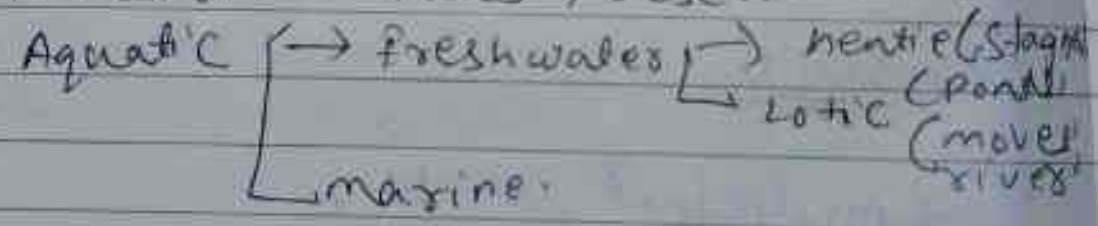 Aquatic → freshwater → nentic (stagn
(pond
Lotic (moves
river
marine.